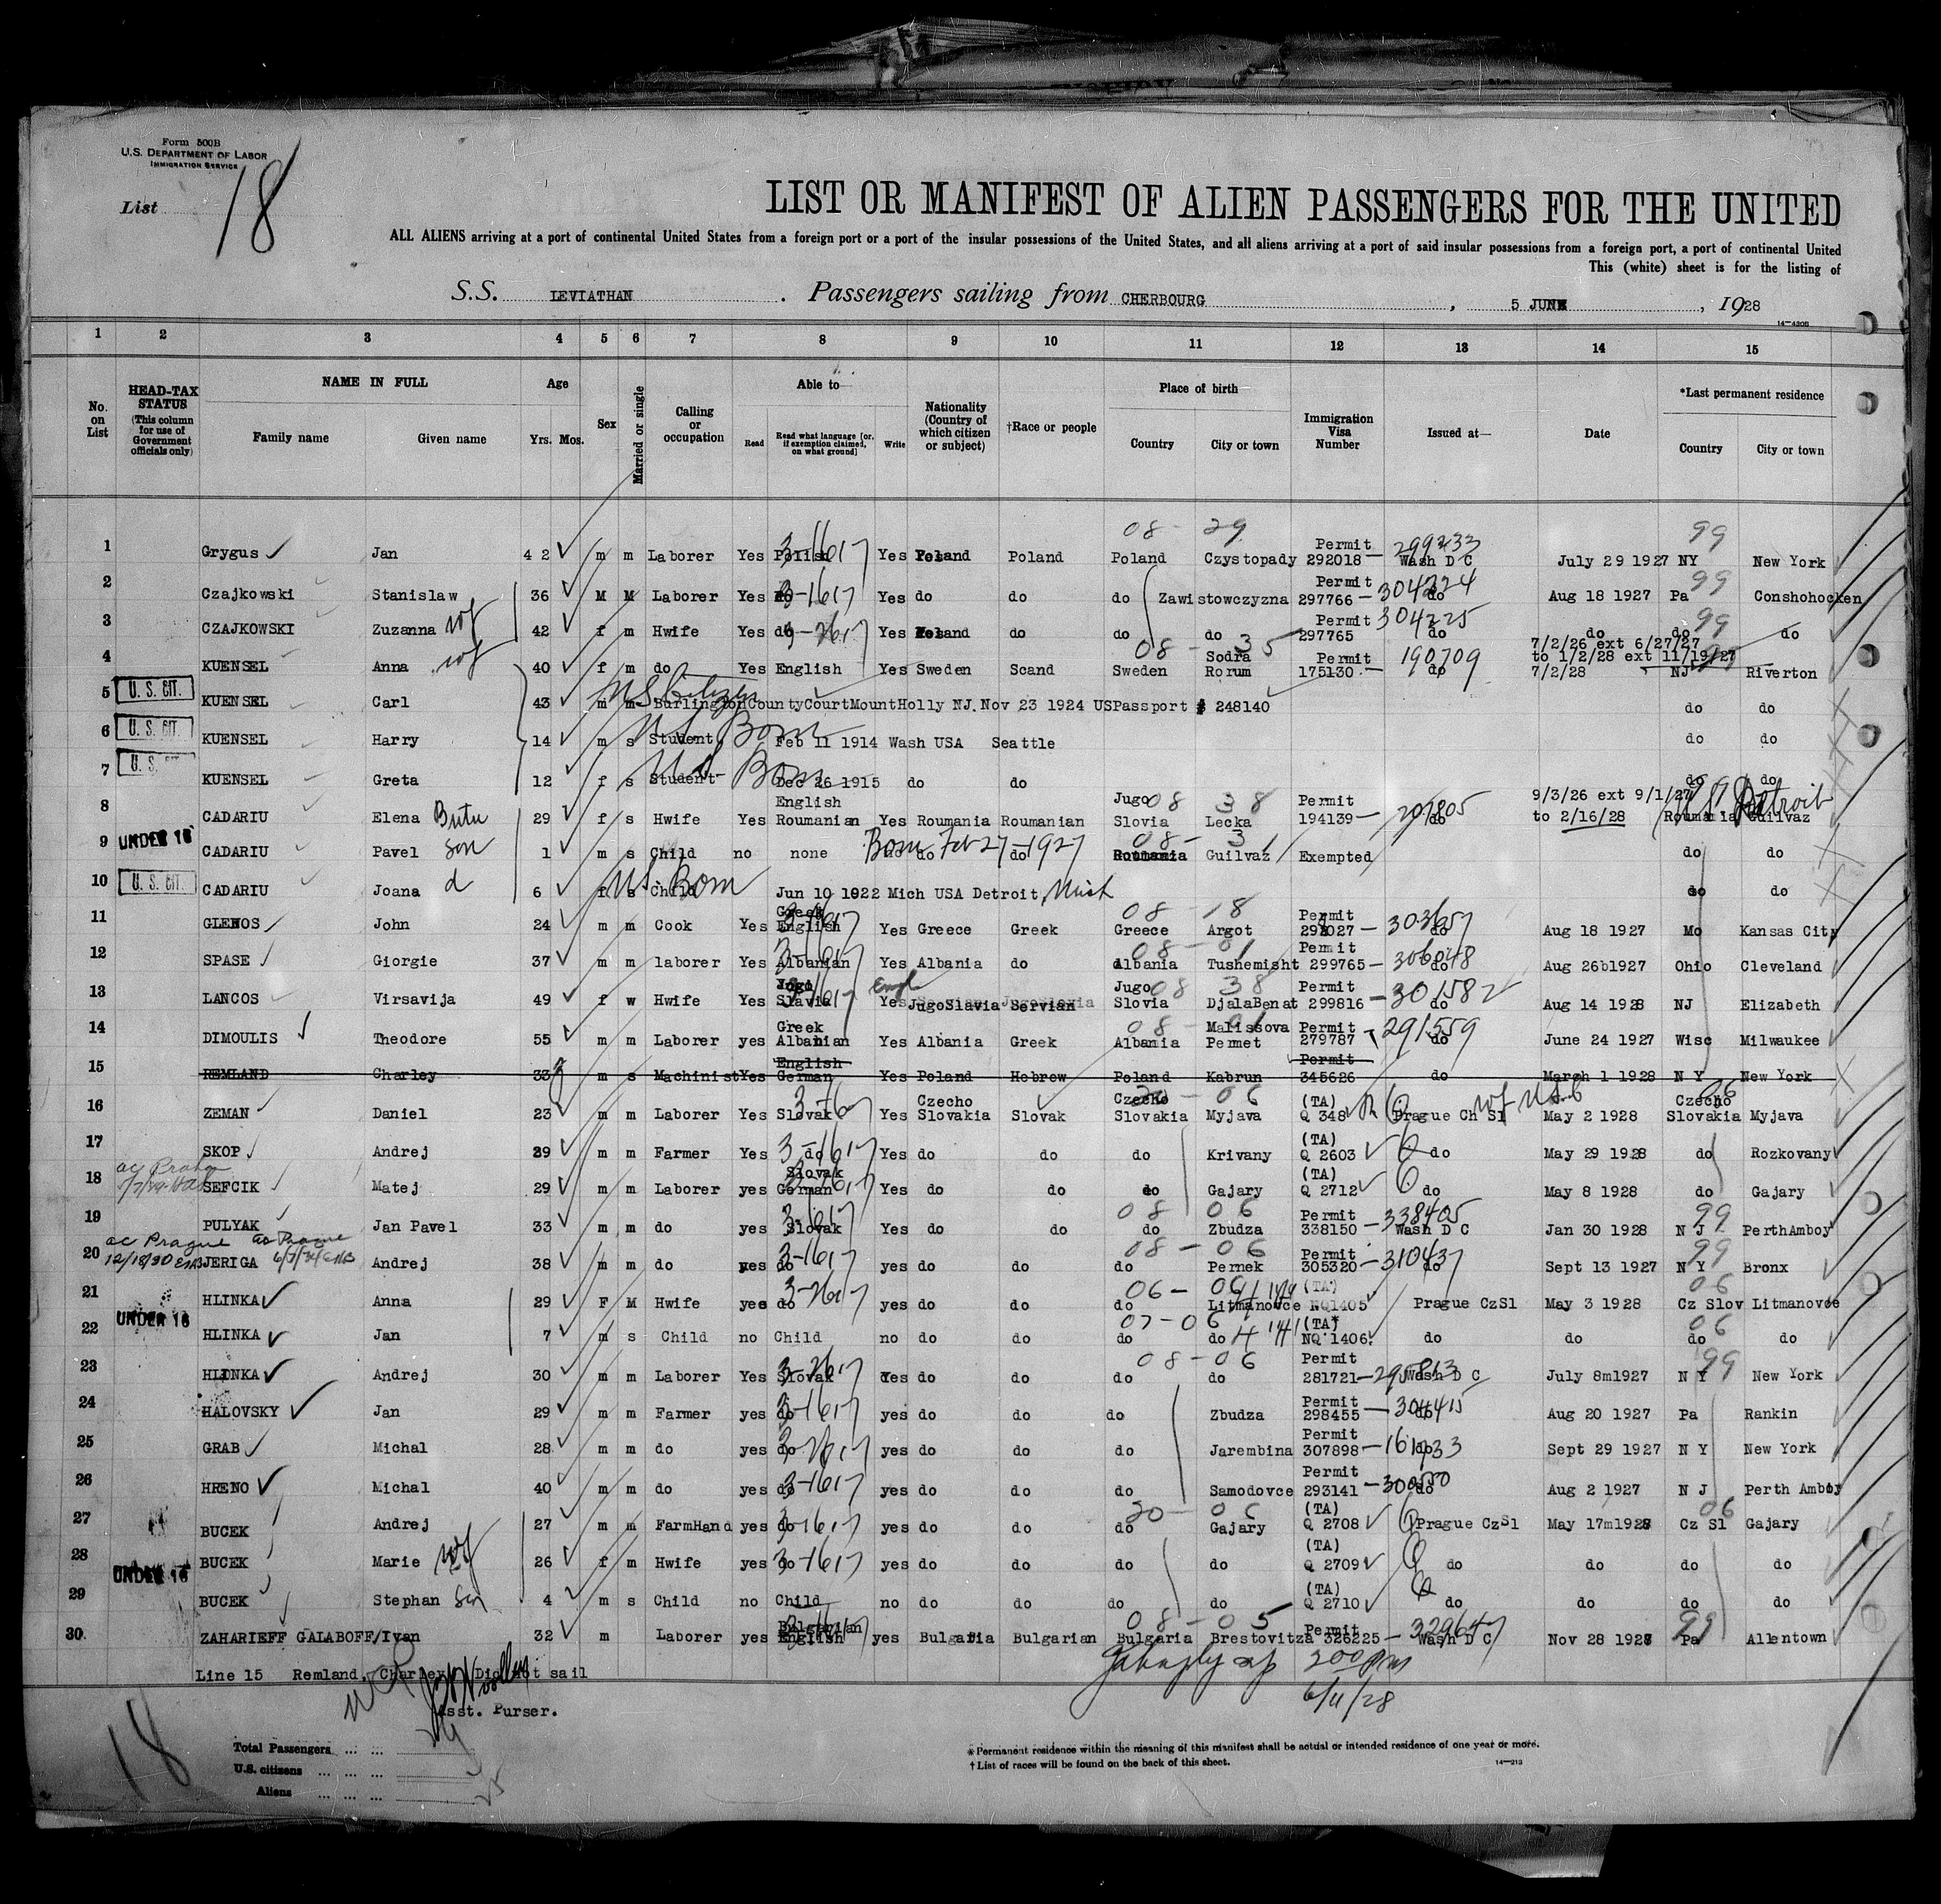 Form 500B
U.S. DEPARTMENT OF LABOR
IMMIGRATION SERVICE
List 18
LIST OR MANIFEST OF ALIEN PASSENGERS FOR THE UNITED
ALL ALIENS arriving at a port of continental United States from a foreign port or a port of the insular possessions of the United States, and all aliens arriving at a port of said insular possessions from a foreign port, a port of continental United
This (white) sheet is for the listing of
S.S. LEVIATHAN . Passengers sailing from CHERBOURG , 5 JUNE , 1928
14—430B
1 2 3 4 5 6 7 8 9 10 11 12 13 14 15
No. on List HEAD-TAX STATUS (This column for use of Government officials only) NAME IN FULL Family name Given name Age Yrs. Mos. Sex Married or single Calling or occupation Able to Read Read what language [or, if exemption claimed, on what ground] Write Nationality (Country of which citizen or subject) †Race or people Place of birth Country City or town Immigration Visa Number Issued at— Date *Last permanent residence Country City or town
08 - 29 99
1 Grygus Jan 42 m m Laborer Yes Polish 3-1617 Yes Poland Poland Poland Czystopady Permit 292018 — 299233 Wash D C July 29 1927 NY New York
2 Czajkowski Stanislaw 36 M M Laborer Yes do 3-1617 Yes do do do Zawistowczyzna Permit 297766 — 304224 do Aug 18 1927 Pa 99 Conshohocken
3 CZAJKOWSKI Zuzanna wf 42 f m Hwife Yes do Yes Poland do do do Permit 297765 304225 do do do 99 do
4 KUENSEL Anna wf 40 f m do Yes English Yes Sweden Scand Sweden 08 - 35 Sodra Rorum Permit 175130 — 190709 do 7/2/26 ext 6/27/27 to 1/2/28 ext 11/19/27 7/2/28 NJ Riverton
5 U. S. CIT. KUENSEL Carl 43 m m US Citizen BurlingtonCountyCourtMountHolly NJ.Nov 23 1924 USPassport # 248140 do do
6 U. S. CIT. KUENSEL Harry 14 m s Student U.S. Born Feb 11 1914 Wash USA Seattle do do
7 U. S. CIT. KUENSEL Greta 12 f s Student US Born Dec 26 1915 do do do do
8 CADARIU Elena 29 f s Hwife Yes English Roumanian Yes Roumania Roumanian Jugo Slovia 08 38 Lecka Permit 194139 — do 9/3/26 ext 9/1/27 to 2/16/28 Roumania Guilvaz U.S. Detroit
9 UNDER 16 CADARIU Pavel son 1 m s Child no none no do do Born Feb 27-1927 08 - 31 Roumania Guilvaz Exempted do do
10 U. S. CIT. CADARIU Joana d 6 f s Child US Born Jun 10 1922 Mich USA Detroit, Mich do do
11 GLENOS John 24 m m Cook Yes Greek English 3-1617 Yes Greece Greek Greece 08 - 18 Argot Permit — 303657 do Aug 18 1927 Mo Kansas City
12 SPASE Giorgie 37 m m laborer Yes Albanian 3-1617 Yes Albania do Albania 08 - 01 Tushemisht Permit 299765 — 306048 do Aug 26b1927 Ohio Cleveland
13 LANCOS Virsavija 49 f w Hwife Yes Jugo Slavia Engl Yes JugoSlavia Servian Jugo Slovia 08 38 DjalaBenat Permit 299816 — 301582 do Aug 14 1928 NJ Elizabeth
14 DIMOULIS Theodore 55 m m Laborer yes Greek Albanian Yes Albania Greek Albania 08 - 01 Malissova Permet Permit 279787 291559 do June 24 1927 Wisc Milwaukee
15 REMLAND Charley 33 m s Machinist Yes English German Yes Poland Hebrew Poland Kabrun Permit 345626 do March 1 1928 N Y New York
16 ZEMAN Daniel 23 m m Laborer Yes Slovak Yes Czecho Slovakia Slovak Czecho Slovakia 06 Myjava (TA) Q 348 Prague Ch Sl May 2 1928 Czecho Slovakia Myjava
17 SKOP Andrej 29 m m Farmer Yes do 3-1617 Yes do do do Krivany (TA) Q 2603 do May 29 1928 do Rozkovany
18 SEFCIK Matej 29 m m Laborer yes Slovak German Yes do do do Gajary (TA) Q 2712 do May 8 1928 do Gajary
19 PULYAK Jan Pavel 33 m m do yes Slovak 3-1617 Yes do do do 08 06 Zbudza Permit 338150 — 338405 Wash D C Jan 30 1928 N J 99 PerthAmboy
ac Prague
20 12/18/30 JERIGA Andrej 38 m m do yes do 3-1617 yes do do do 08 - 06 Pernek Permit 305320 — 310437 do Sept 13 1927 N Y 99 Bronx
21 HLINKA Anna 29 F M Hwife yes do yes do do do 06 - 06 Litmanovce (TA) NQ1405 Prague CzSl May 3 1928 Cz Slov 06 Litmanovce
22 UNDER 16 HLINKA Jan 7 m s Child no Child no do do do 07-06 do (TA) NQ 1406 do do do 06 do
23 HLINKA Andrej 30 m m Laborer Yes Slovak Yes do do do 08-06 do Permit 281721 — 295863 Wash D C July 8m1927 N Y 99 New York
24 HALOVSKY Jan 29 m m Farmer yes do 3-1617 yes do do do Zbudza Permit 298455 — 304415 do Aug 20 1927 Pa Rankin
25 GRAB Michal 28 m m do yes do yes do do do Jarembina Permit 307898 — do Sept 29 1927 N Y New York
26 HRENO Michal 40 m m do yes do 3-1617 yes do do do Samodovce Permit 293141 — do Aug 2 1927 N J Perth Amboy
27 BUCEK Andrej 27 m m FarmHand yes do 3-1617 yes do do do 20 - 06 Gajary (TA) Q 2708 Prague CzSl May 17m1928 Cz Sl 06 Gajary
28 BUCEK Marie wf 26 f m Hwife yes do 3-1617 yes do do do do (TA) Q 2709 do do do do
29 UNDER 16 BUCEK Stephan son 4 m s Child no Child no do do do do (TA) Q 2710 do do do do
30. ZAHARIEFF GALABOFF/Ivan 32 m Laborer yes Bulgarian English yes Bulgaria Bulgarian Bulgaria 08 - 05 Brestovitza Permit 326225 — 329647 Wash D C Nov 28 1927 Pa 99 Allentown
Line 15 Remland, Charley Did not sail
Asst. Purser.
200 pm
6/11/28
18
Total Passengers
U.S. citizens
Aliens
* Permanent residence within the meaning of this manifest shall be actual or intended residence of one year or more.
† List of races will be found on the back of this sheet.
14—213